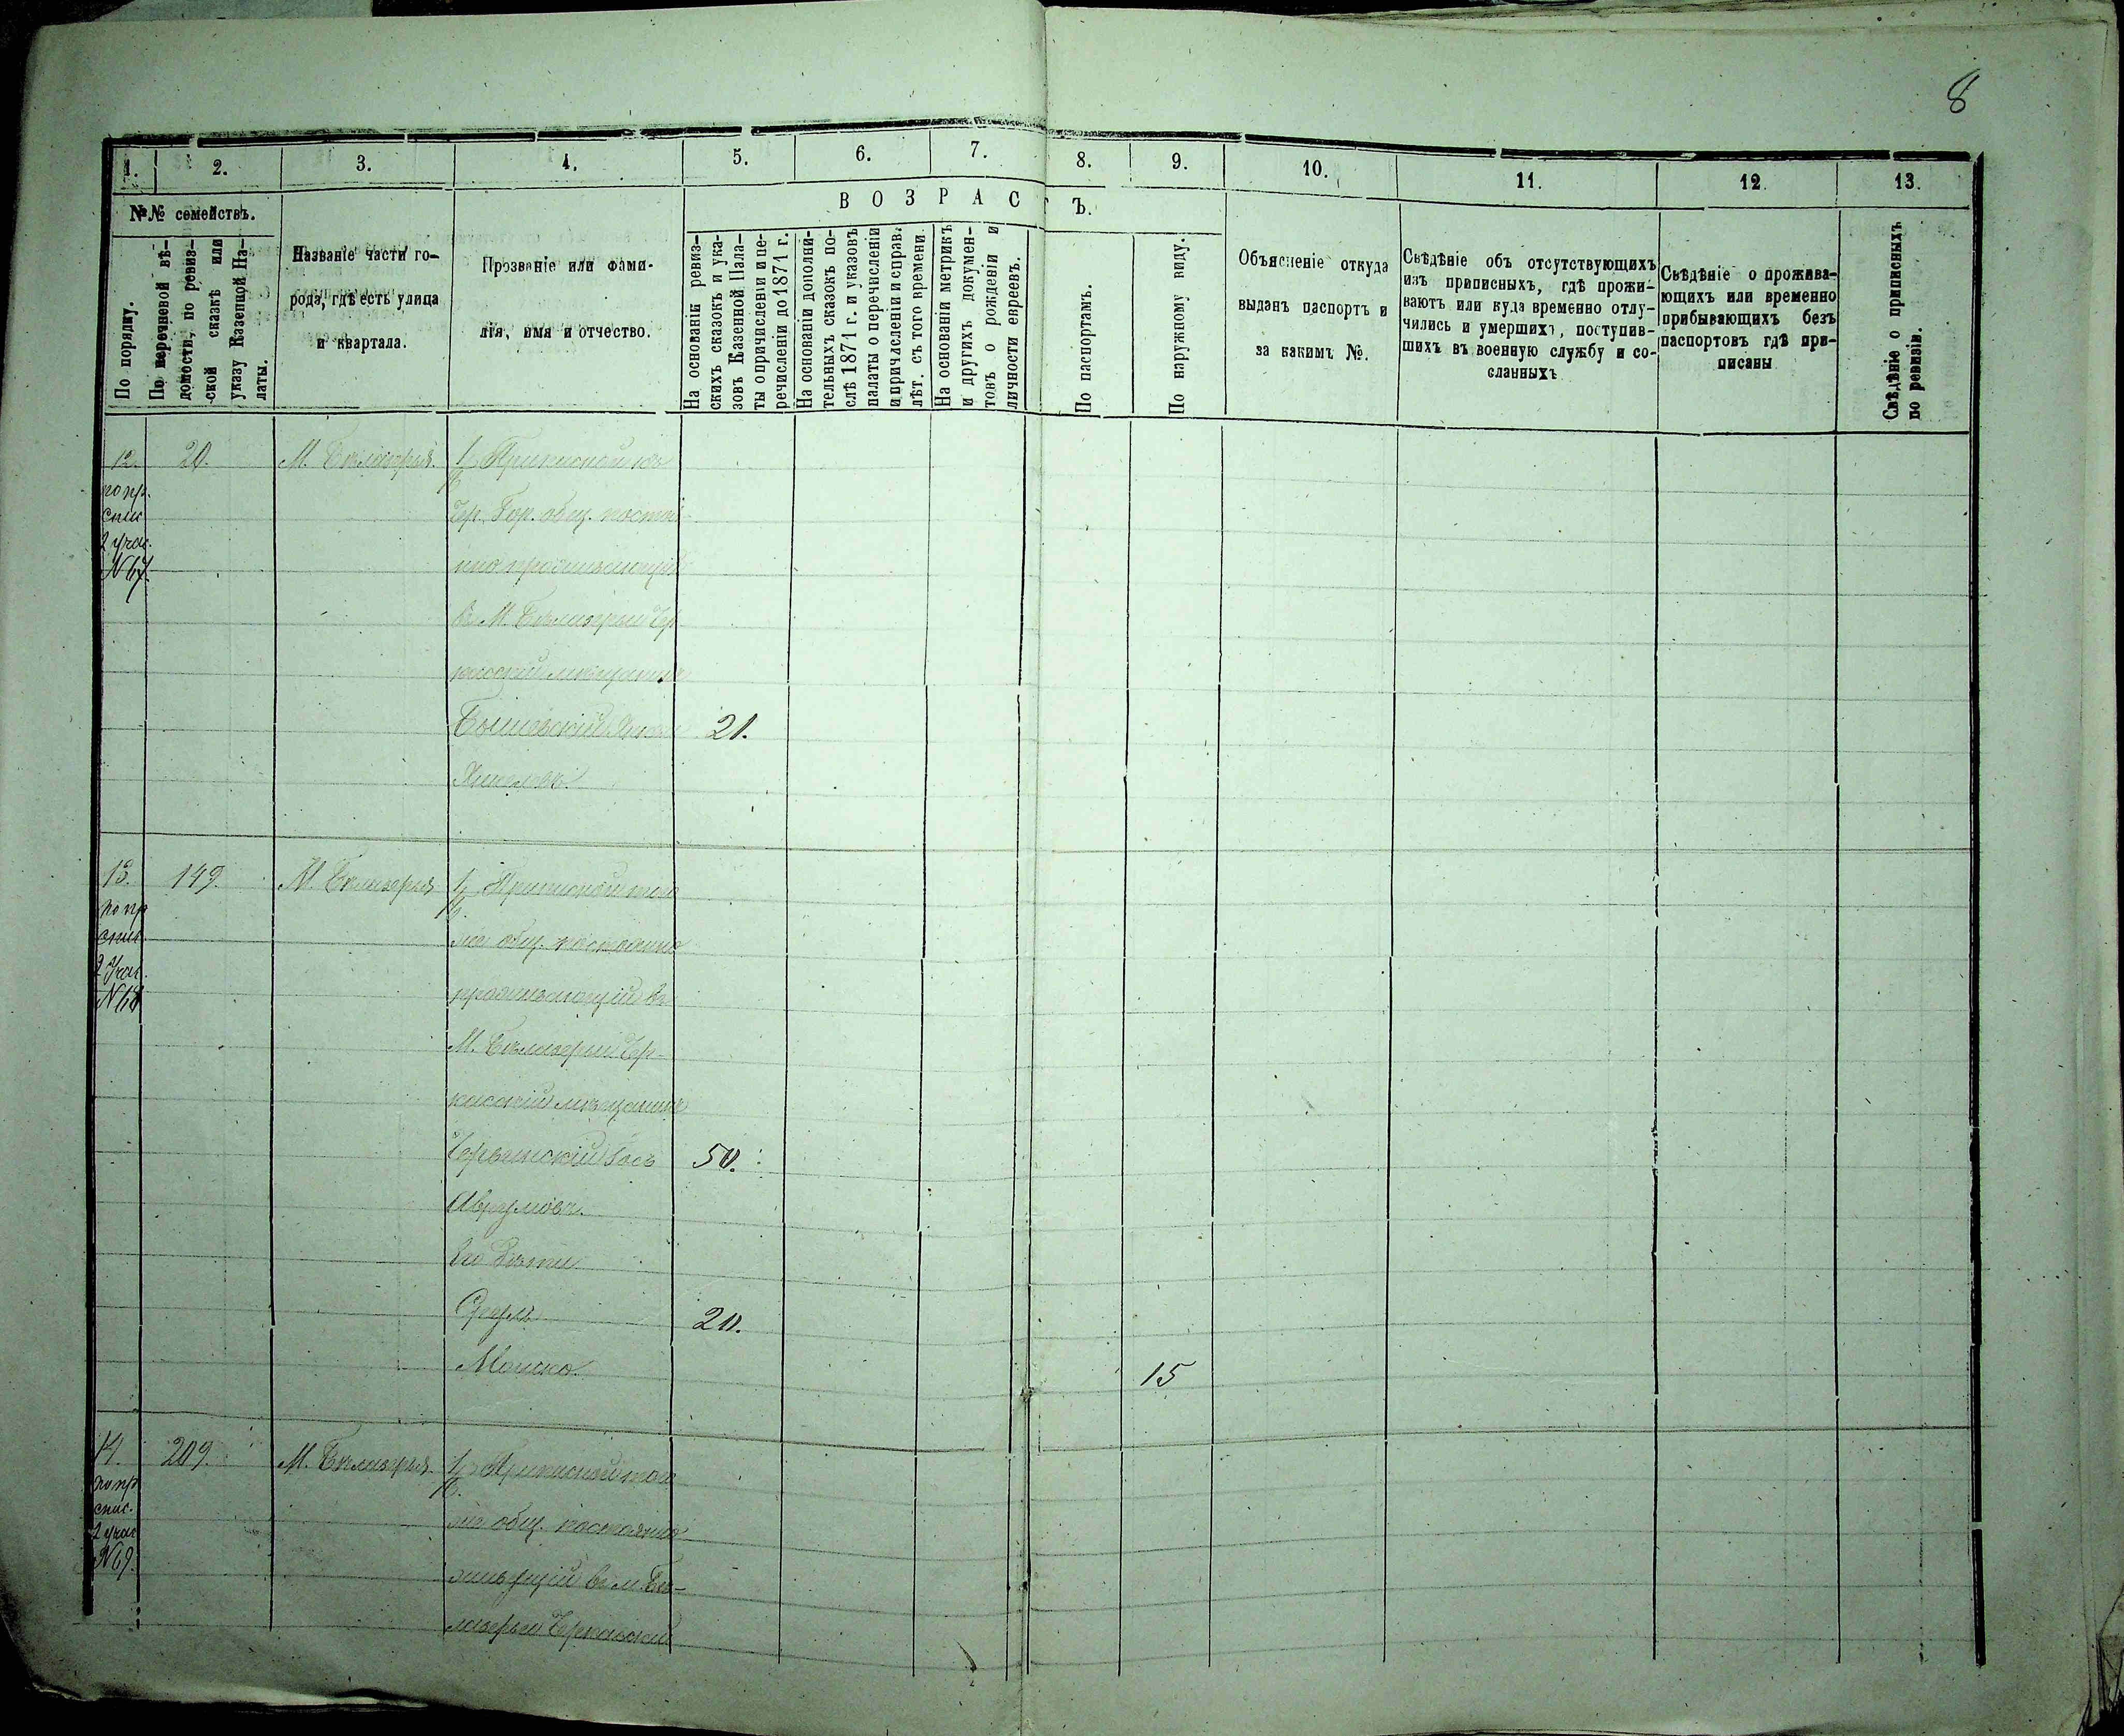 8
1. 2. 3. 4. 5. 6. 7. 8. 9. 10. 11. 12. 13.
№№ семействъ.
В О З Р А С Т Ъ.
По порядку.
По перечневой вѣ-
домости, по ревиз-
ской сказкѣ или
указу Казенной Па-
латы.
Названіе части го-
рода, гдѣ есть улица
и квартала.
Прозваніе или фами-
лія, имя и отчество.
На основаніи ревиз-
скихъ сказокъ и ука-
зовъ Казенной Пала-
ты о причисленіи и пе-
речисленіи до 1871 г.
На основаніи дополни-
тельныхъ сказокъ по-
слѣ 1871 г. и указовъ
палаты о перечисленіи
и причисленіи и справ.
лѣт. съ того времени.
На основаніи метрикъ
и другихъ докумен-
товъ о рожденіи и
личности евреевъ.
По паспортамъ.
По наружному виду.
Объясненіе откуда
выданъ паспортъ и
за какимъ №.
Свѣдѣніе объ отсутствующихъ
изъ приписныхъ, гдѣ прожи-
ваютъ или куда временно отлу-
чились и умершихъ, поступив-
шихъ въ военную службу и со-
сланныхъ
Свѣдѣніе о прожива-
ющихъ или временно
прибывающихъ безъ
паспортовъ гдѣ при-
писаны
Свѣдѣніе о приписныхъ
по ревизіи.
12. 20. М. Бѣлозерья. Приписной къ
по пр.
спис
2 учас.
N 67.
Чер. Гор. общ. постоя-
нно проживающій
въ М. Бѣлозерьи Чер-
касскій мѣщанинъ
21.
13. 149. М. Бѣлозерья Приписной
по пр
спис.
2 Учас.
N 68
общ. постоянно
проживающій въ
М. Бѣлозерьи Чер-
касскій мѣщанинъ
50.
Аврумовъ.
Его Дѣти
Сруль 20.
Мошко. 15
14. 209. М. Бѣлозерья. Приписной
по пр
спис.
2 учас
N 69.
общ. постоянно
живущій въ м. Бѣ-
лозерьи Черкасскій